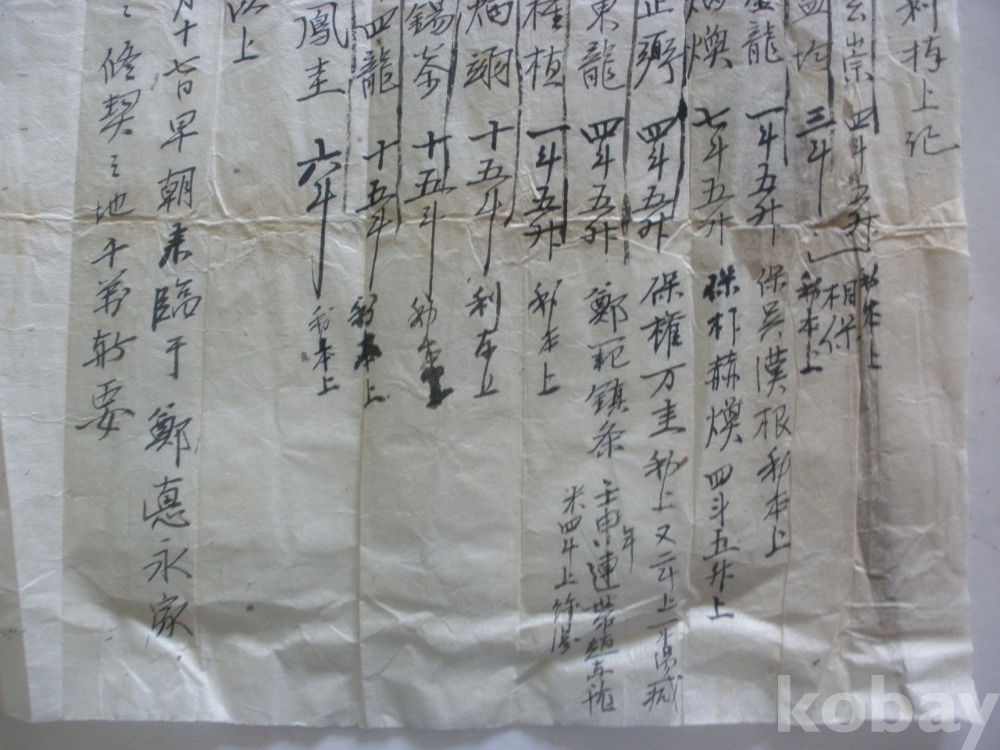 利條上記
崇 四斗五升 利本上
相保
均 三斗 利本上
龍 一斗五升 保吳漢根 利本上
煥 七斗五升 保朴赫煥 四斗五升上
弼 四斗五升 保權万圭 利上 又二斗上
東龍 四斗五升 鄭範鎮条 壬申年連帶
米四斗上
植 一斗五升 利本上
翊 十五斗 利本上
錫 十五斗 利本上
四龍 十五斗 利本上
鳳圭 六斗 利本上
以上
月十七日早朝來臨于 鄭憙永家
修契之地千萬 要
kobay